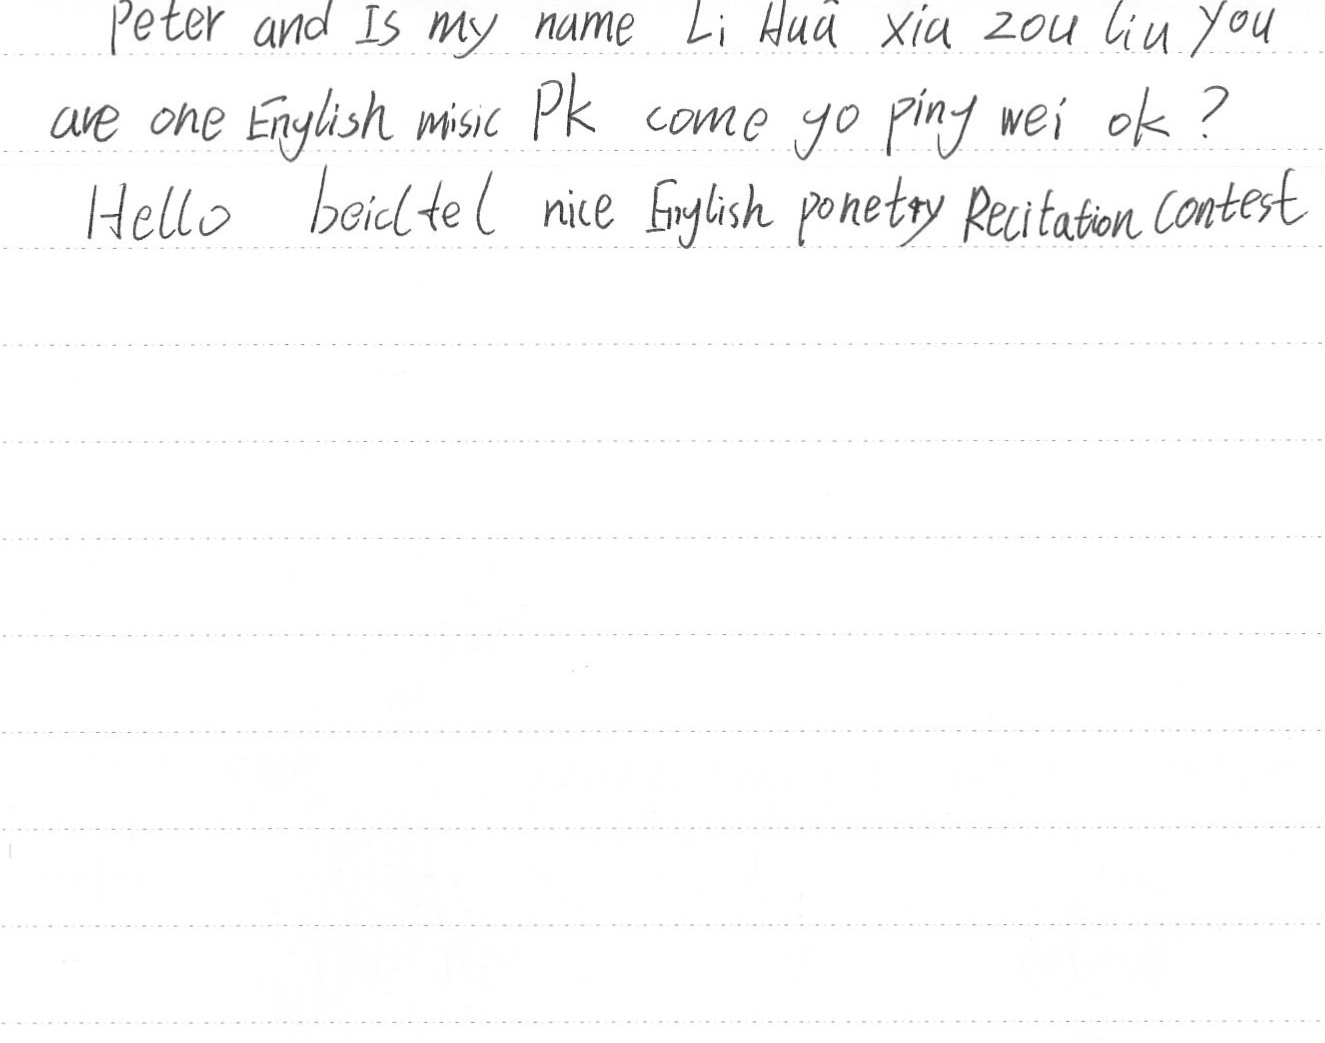 Peter and Is my name Li Hua xia zou liu you
are one English misic Pk come yo ping wei ok?
Hello beidtel nice English ponetry Recitation Contest